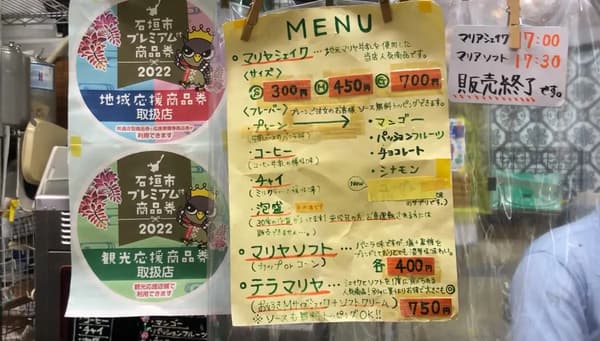 石垣市
プレミアム付
商品券
2022
地域応援商品券
取扱店
利用できます
石垣市
プレミアム付
商品券
2022
観光応援商品券
取扱店
観光応援店舗で
利用できます
MENU
マリヤシェイク…地元マリヤ牛乳を使用した
当店人気商品です。
〈サイズ〉
S 300円 M 450円 L 700円
〈フレーバー〉プレーンご注文のお客様 ソース無料トッピングできます。
・プレーン
・マンゴー
・パッションフルーツ
・コーヒー
・チョコレート
・チャイ
・シナモン
New
・泡盛
マリヤソフト…
(カップ or コーン)
各 400円
テラマリヤ…
(お好きなMサイズシェイク+ソフトクリーム)
※ソースも無料トッピングOK!!
750円
マリアシェイク 17:00
マリアソフト 17:30
販売終了です。
コーヒー
チャイ
・マンゴー
・パッションフルーツ